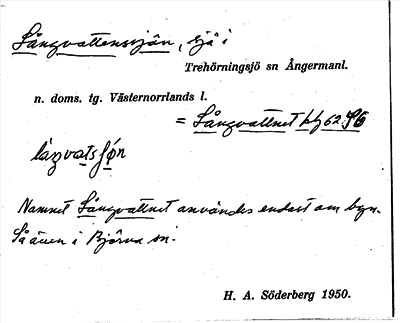 Långvattensjön, sjö i
Trehörningsjö sn Ångermanl.
n. doms. tg. Västernorrlands l.
= Långvattnet bl 62 S6
låŋvatsjøn
Namnet Långvattnet användes endast om byn.
Så även i Björna sn.
H. A. Söderberg 1950.